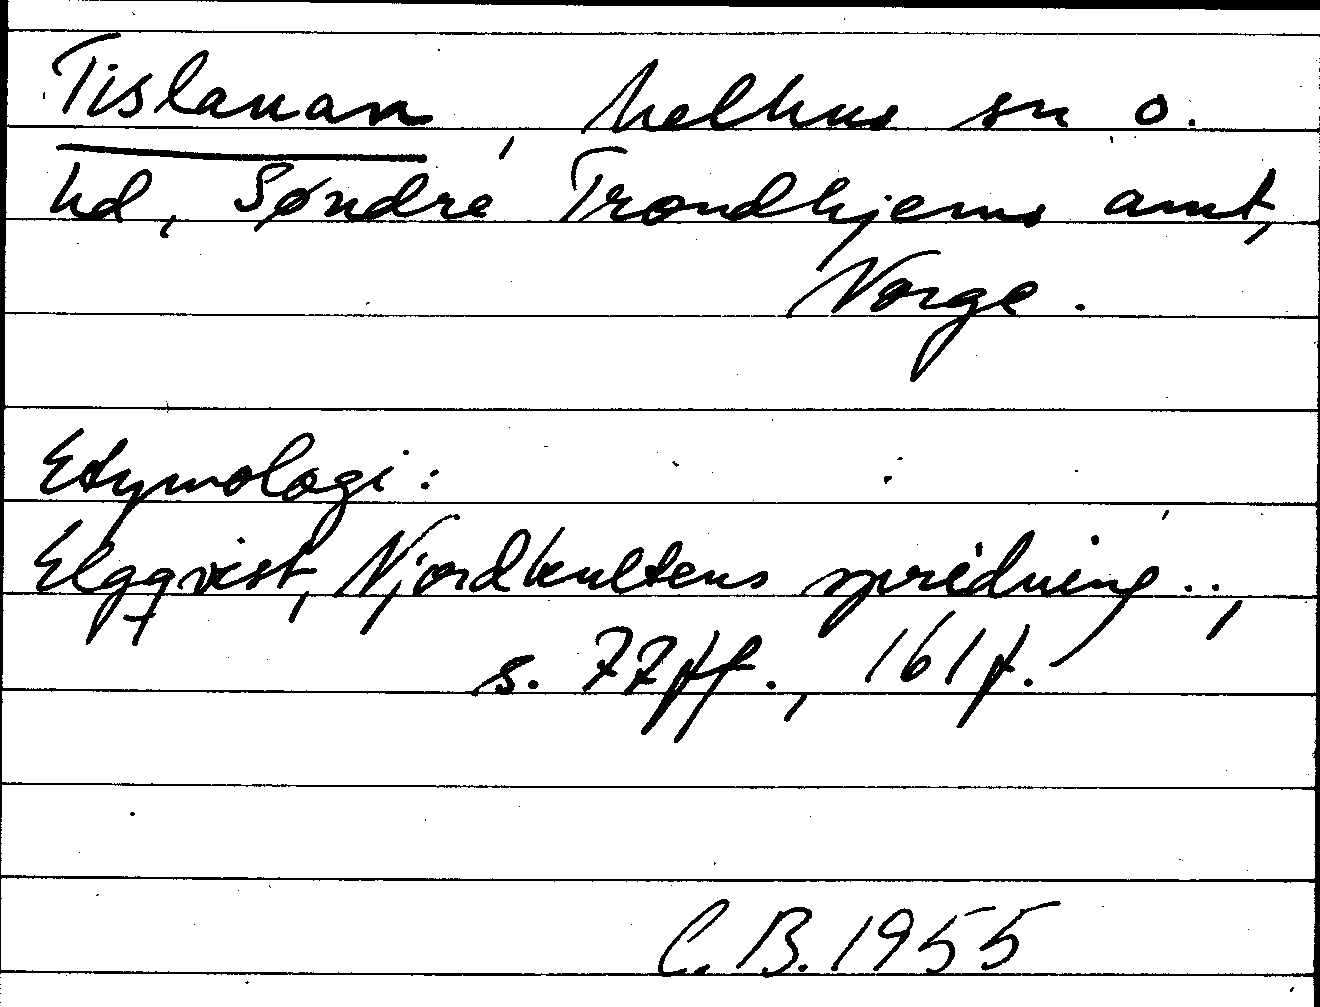 Tislauan, Melhus sn o.
hd, Søndre Trondhjems amt,
Norge.
Etymologi:
Elgqvist, Njordkultens spridning..,
s. 77ff., 161f.
C.B. 1955